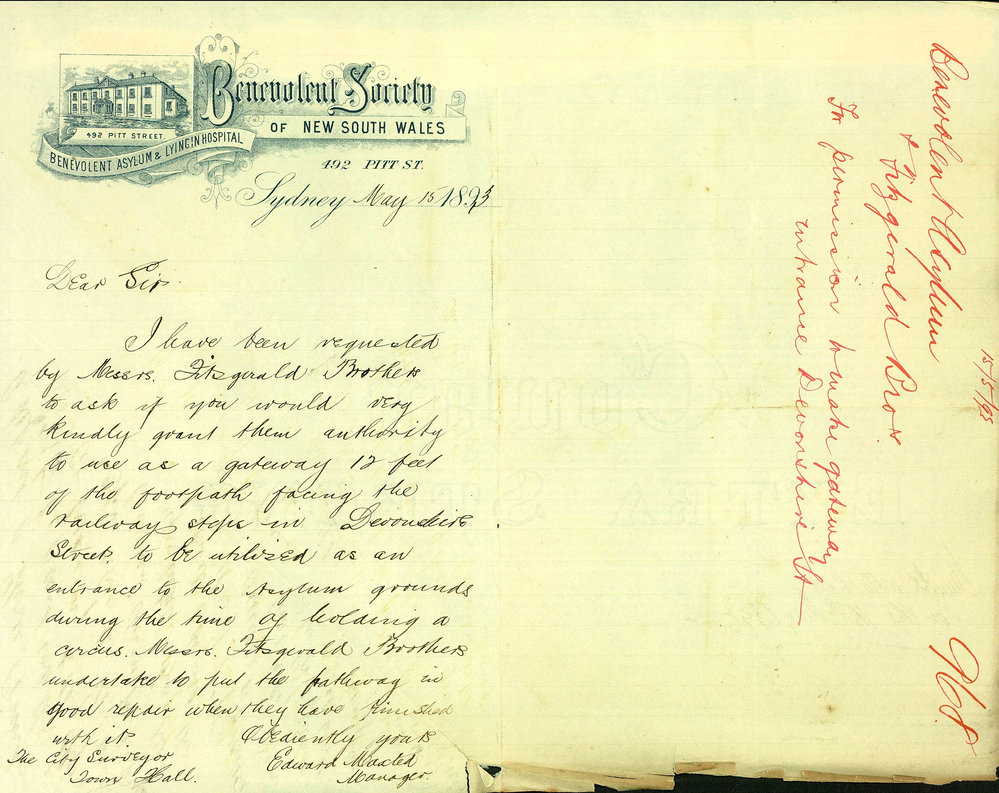 Benevolent Society
OF NEW SOUTH WALES
492 PITT STREET.
BENEVOLENT ASYLUM & LYING IN HOSPITAL
492 PITT ST.
Sydney May 15 1893
Dear Sir
I have been requested
by Messrs. Fitzgerald Brothers
to ask if you would very
kindly grant them authority
to use as a gateway 12 feet
of the footpath facing the
railway steps in Devonshire
Street, to be utilized as an
entrance to the Asylum grounds
during the time of holding a
circus. Messrs. Fitzgerald Brothers
undertake to put the pathway in
good repair when they have finished
with it.
Obediently yours
Edward Maxted
Manager.
The City Surveyor
Town Hall.
Benevolent Asylum
& Fitzgerald Bros.
For permission to make gateway
entrance Devonshire St
15/5/93